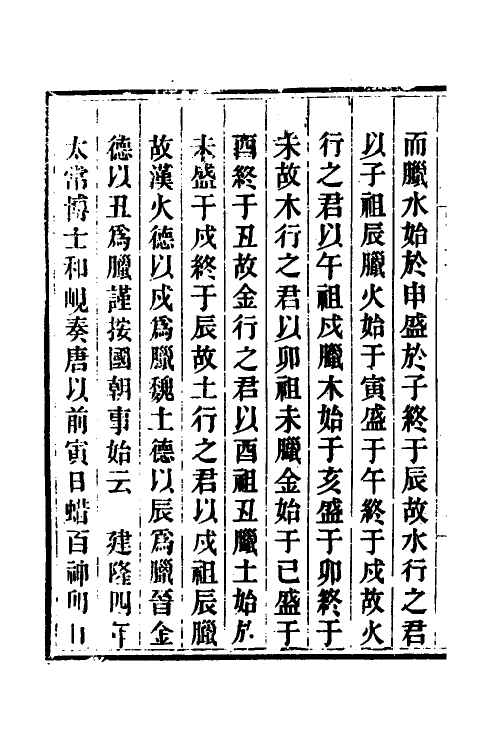 而臘水始於申盛於子終于辰故水行之君
以子祖辰臘火始于寅盛于午終于戍故火
行之君以午祖戍臘木始于亥盛于卯終于
未故木行之君以卯祖未臘金始于己盛于
酉終于丑故金行之君以酉祖丑臘土始於
未盛于戍終于辰故土行之君以戍祖辰臘
故漢火德以戍為臘魏土德以辰為臘晉金
德以丑為臘謹按國朝事始云　建隆四年
太常博士和峴奏唐以前寅日蜡百神卯日